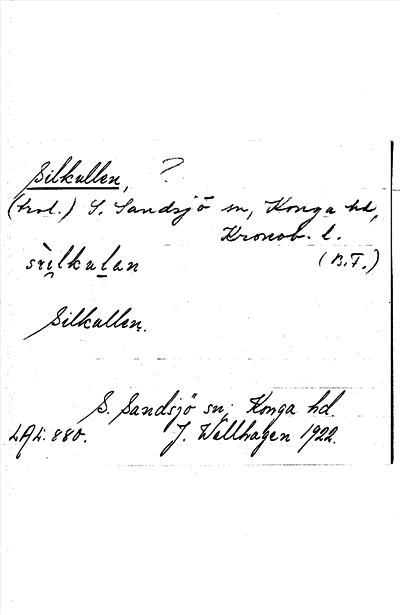 Silkullen, ?
(trol.) S. Sandsjö sn, Konga hd,
Kronob. l.
(B.F.)
Silkullen.
S. Sandsjö sn. Konga hd.
LAL. 880. J. Wallhagen 1922.